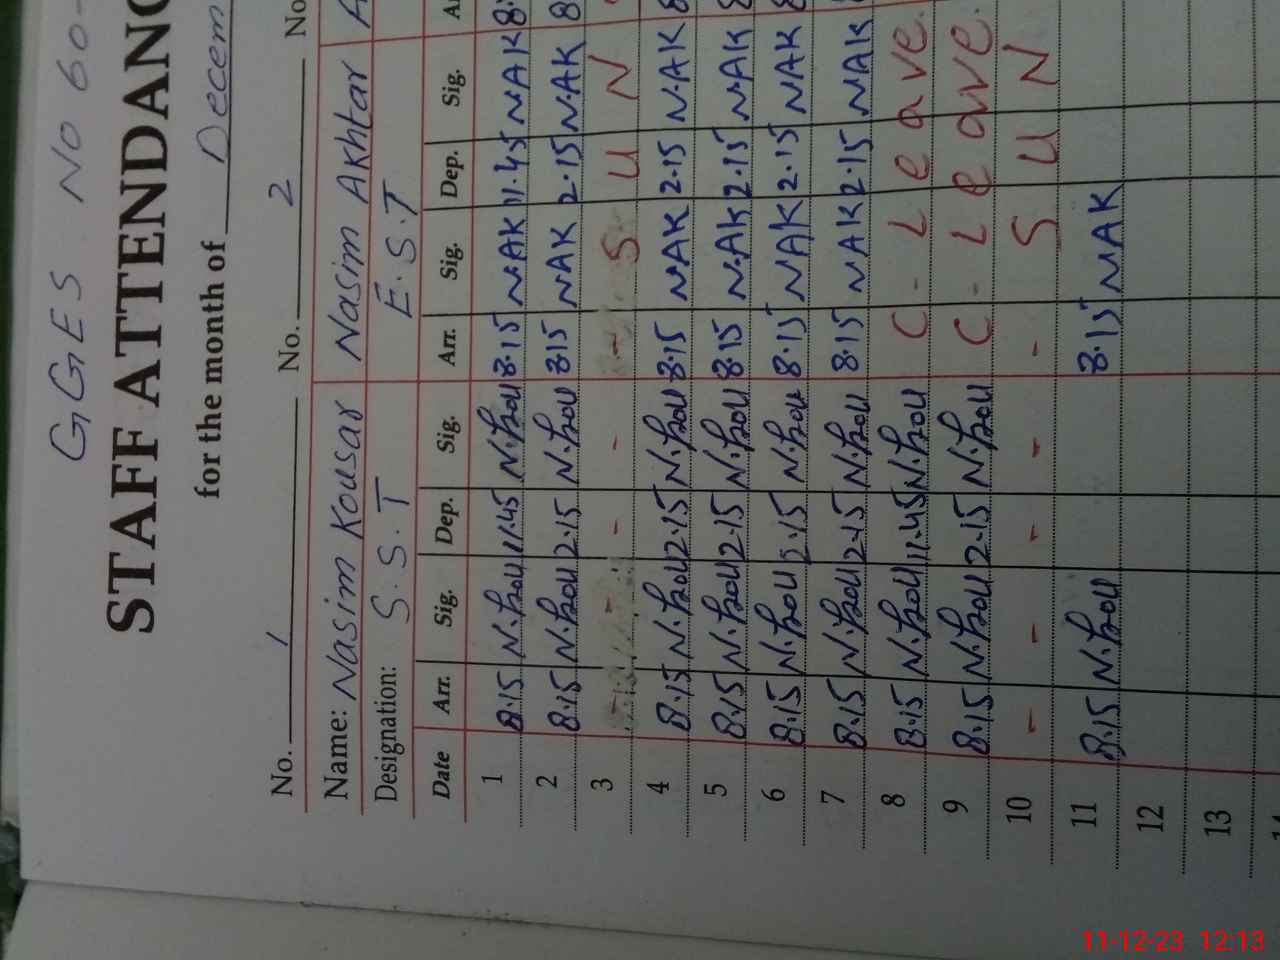 GGES No 60-
STAFF ATTENDANC
for the month of Decem
No. 1 No. 2 No.
Name: Nasim Kousar Nasim Akhtar
Designation: S.S.T E.S.T
Date Arr. Sig. Dep. Sig. Arr. Sig. Dep. Sig.
1 8.15 11.45 8.15 N.AK 11.45 N.AK
2 8.15 2.15 8.15 N.AK 2.15 N.AK
3 - - - S U N
4 8.15 2.15 8.15 N.AK 2.15 N.AK
5 8.15 2.15 8.15 N.AK 2.15 N.AK
6 8.15 2.15 8.15 NAK 2.15 NAK
7 8.15 2.15 8.15 NAK 2.15 NAK
8 8.15 11.45 C - Leave.
9 8.15 2.15 C - Leave.
10 - - - - - S U N
11 8.15 8.15 NAK
12
13
11-12-23 12:13